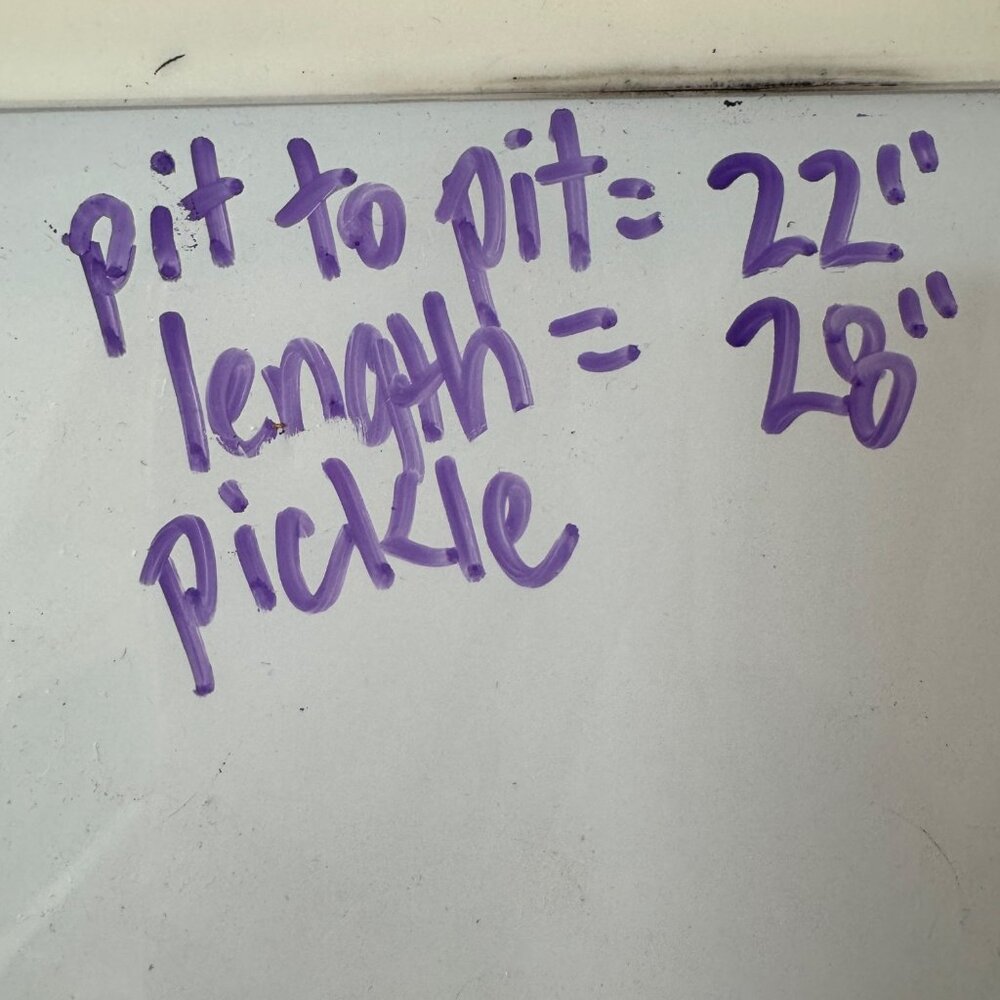 pit to pit = 22"
length = 28"
pickle